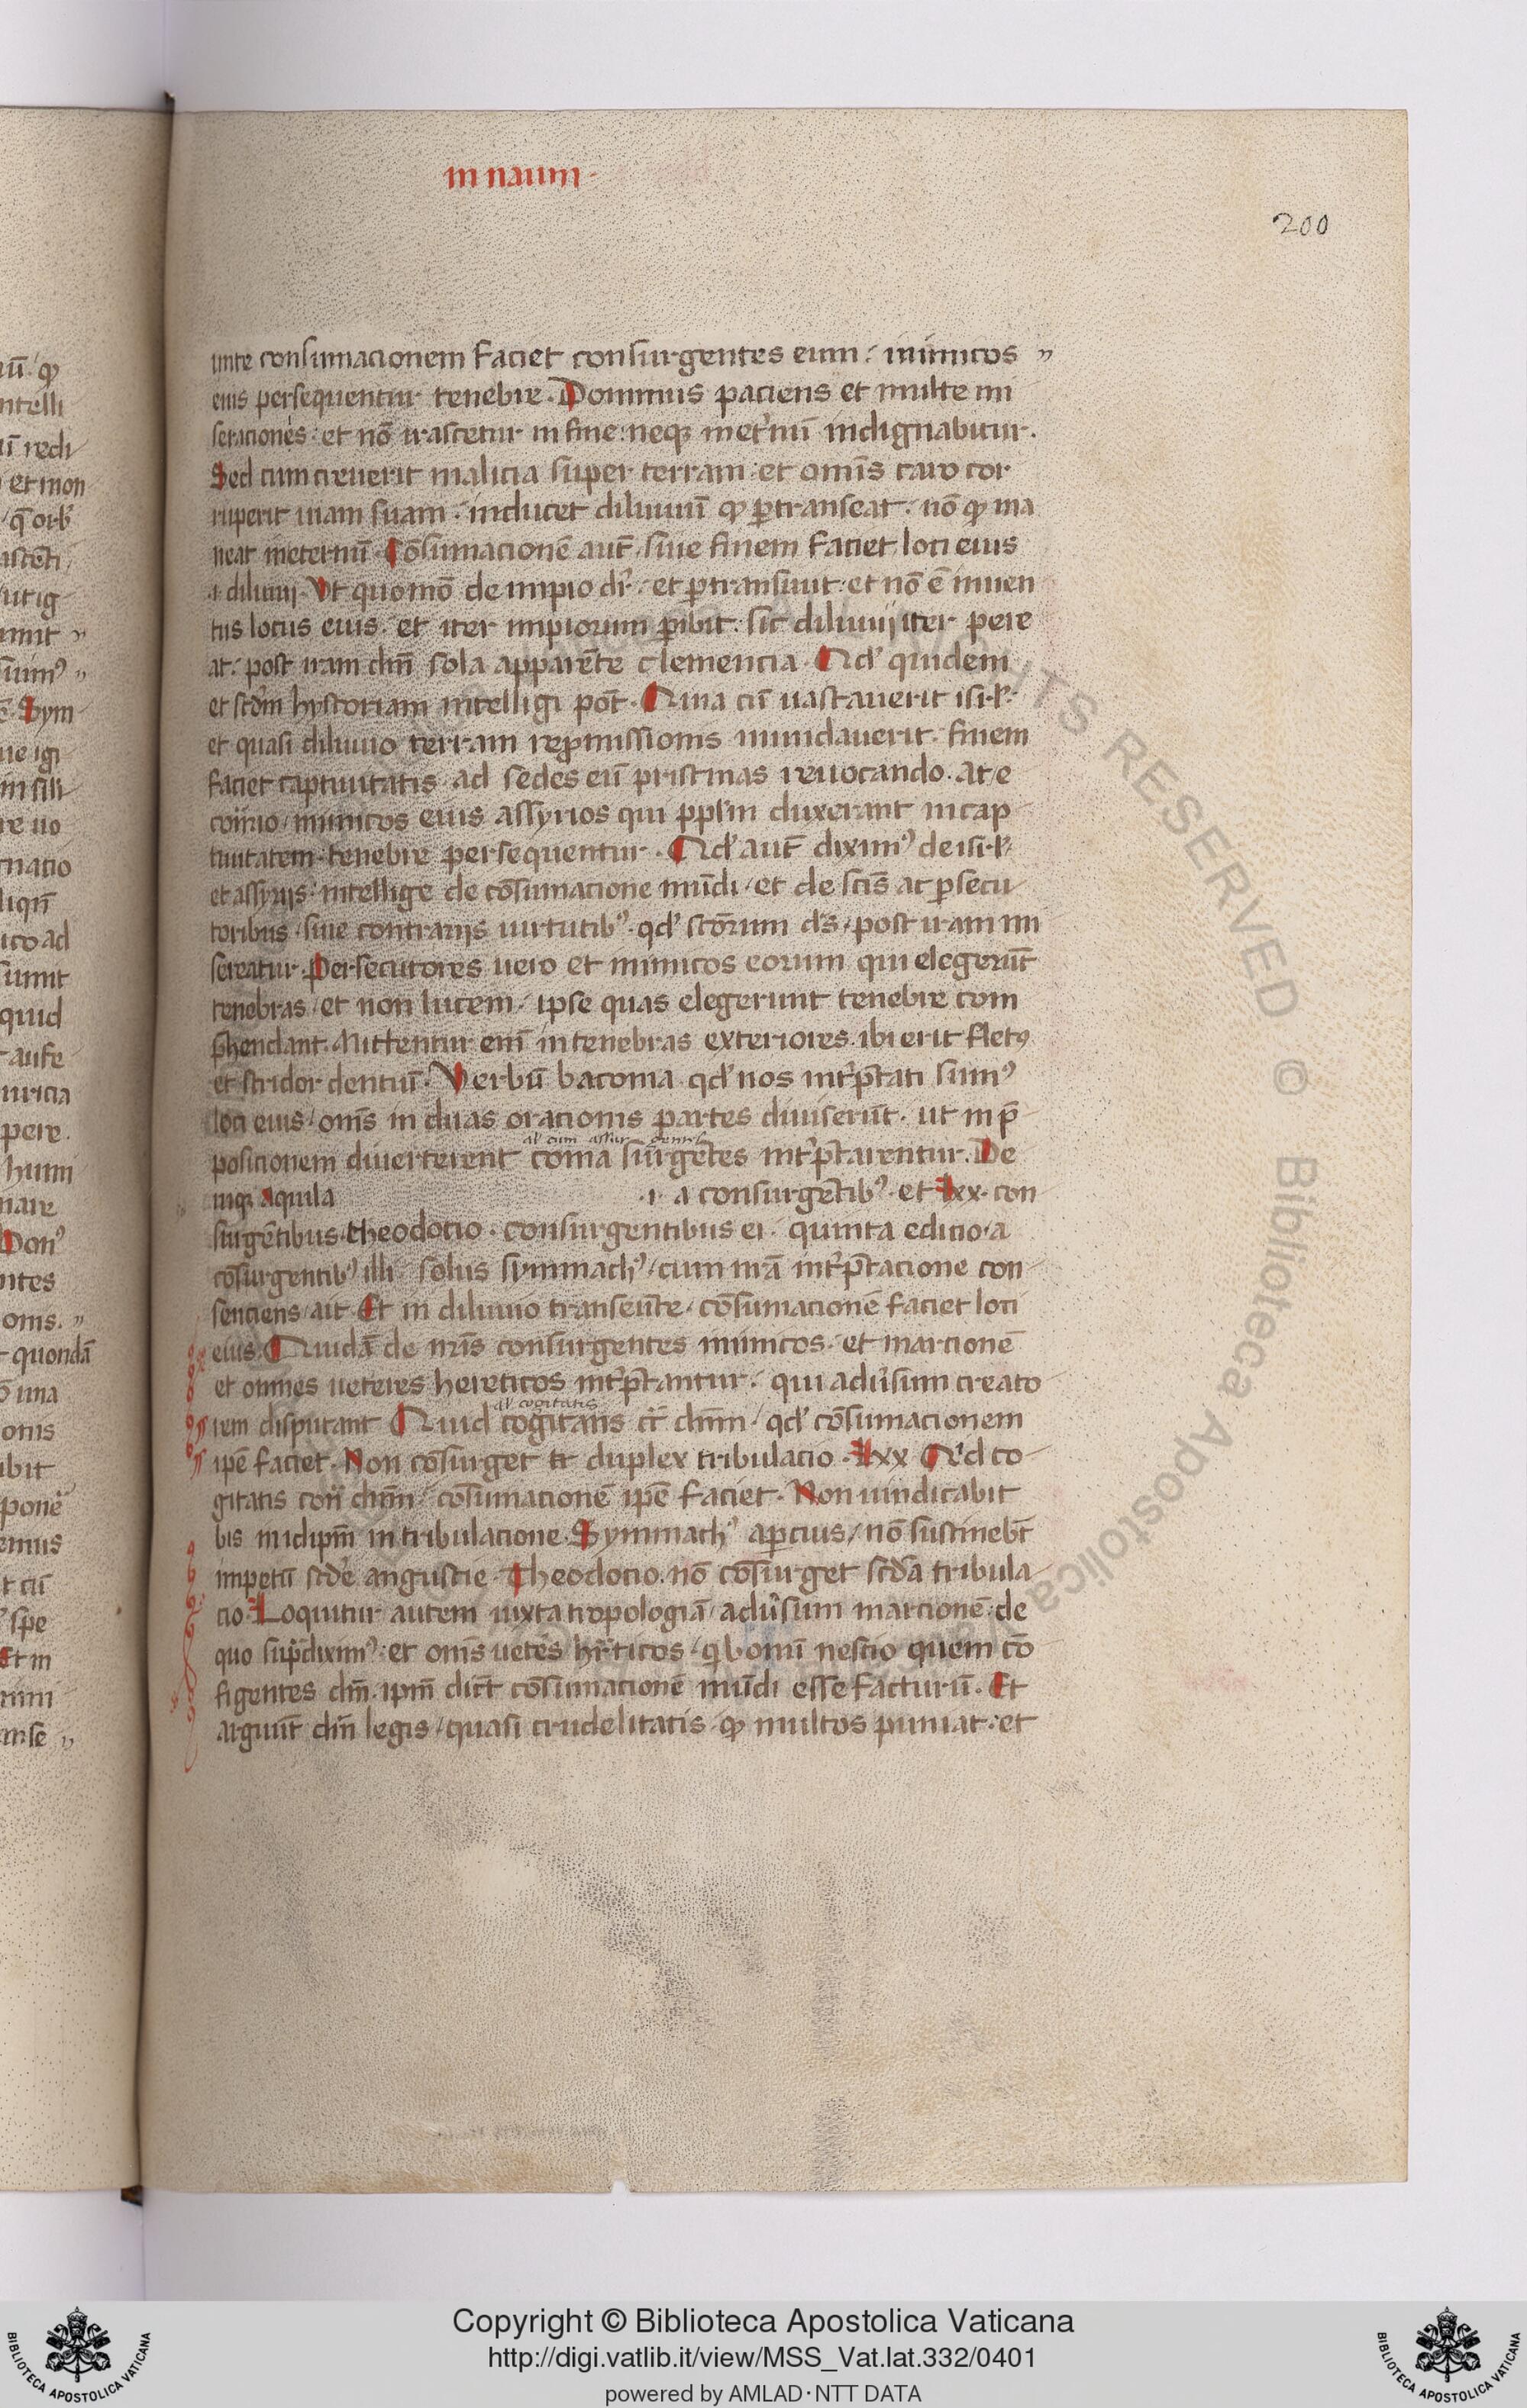 in naum
200
unte consumacionem faciet consurgentes eum. inimicos
eius persequentur tenebre. Dominus paciens et multe mi
seraciones. et nō irascetur in fine. neqꝫ inet'nū indignabitur.
Sed cum creuerit malicia super terram. et omīs caro cor
ruperit uiam suam. inducet diluuiū qđ ꝑtranseat. nō qđ ma
neat ineternū. Cōsumacionē aut̄ siue finem faciet loci eius
.i. diluuij. Vt quomō de impio dr̄. et ꝑtransiuit. et nō ē inuen
tus locus eius. et iter impiorum ꝑibit. sic diluuij iter pere
at. post iram dn̄i sola apparēte clemencia. Qd' quidem
et scd'm hystoriam intelligi pot̄. Quia cū uastauerit isrl'.
et quasi diluuio terram repromissionis inundauerit. finem
faciet captiuitatis ad sedes eū pristinas reuocando. at e
cōtrario inimicos eius assyrios qui ppl'm duxerant in cap
tiuitatem. tenebre persequentur. Qd' aut̄ diximꝰ de isrl'
et assyrijs. intellige de cōsumacione mūdi et de sc̄is ac ꝑsecu
toribus siue contrarijs uirtutibꝰ. qd' sc̄orum d's post iram mi
sereatur. Persecutores uero et inimicos eorum qui elegerūt
tenebras et non lucem, ipse quas elegerunt tenebre com
p̄hendant. Mittentur enī in tenebras exteriores. ibi erit fletꝰ
et stridor dentiū. Verbū bacoma qd' nos int'p̄tati sumꝰ
loci eius, omīs in duas oracionis partes diuiserūt. ut in p̄
al' cum assur gentes
posicionem diuerterent coma surgētes int'p̄tarentur. De
niqꝫ aquila .i. a consurgētibꝰ. et lxx. con
surgētibus. theodocio. consurgentibus ei. quinta edicio. a
cōsurgentibꝰ illi. solus symmachꝰ cum nr̄a int'p̄tacione con
senciens ait. Et in diluuio transeūte cōsumacionē faciet loci
eius. Quidā de nr̄is consurgentes inimicos. et marcionē
et omnes ueteres hereticos int'p̄tantur. qui adu'sum creato
al' cogitatis
rem disputant. Quid cogitatis cr̄ dnm̄. qd' cōsumacionem
ipē faciet. Non cōsurget tr̄ duplex tribulacio. lxx. Qd co
gitatis cont̄ dnm̄. cōsumacionē ipē faciet. Non uindicabit
bis in idipm̄ in tribulacione. Symmachꝰ apcius, nō sustinebt̄
impetū scd'e angustie. Theodocio. nō cōsurget scd'a tribula
cio. Loquitur autem iuxta tropologiā adu'sum marcionē de
quo sup̄diximꝰ. et omīs uetēs hr̄ticos. qi bonū nescio quem cō
figentes dnm̄. ipm̄ dict̄ cōsumacionē mūdi esse facturū. Et
arguūt dnm̄ legis, quasi crudelitatis. qđ multos puniat. et
Copyright © Biblioteca Apostolica Vaticana
http://digi.vatlib.it/view/MSS_Vat.lat.332/0401
powered by AMLAD·NTT DATA